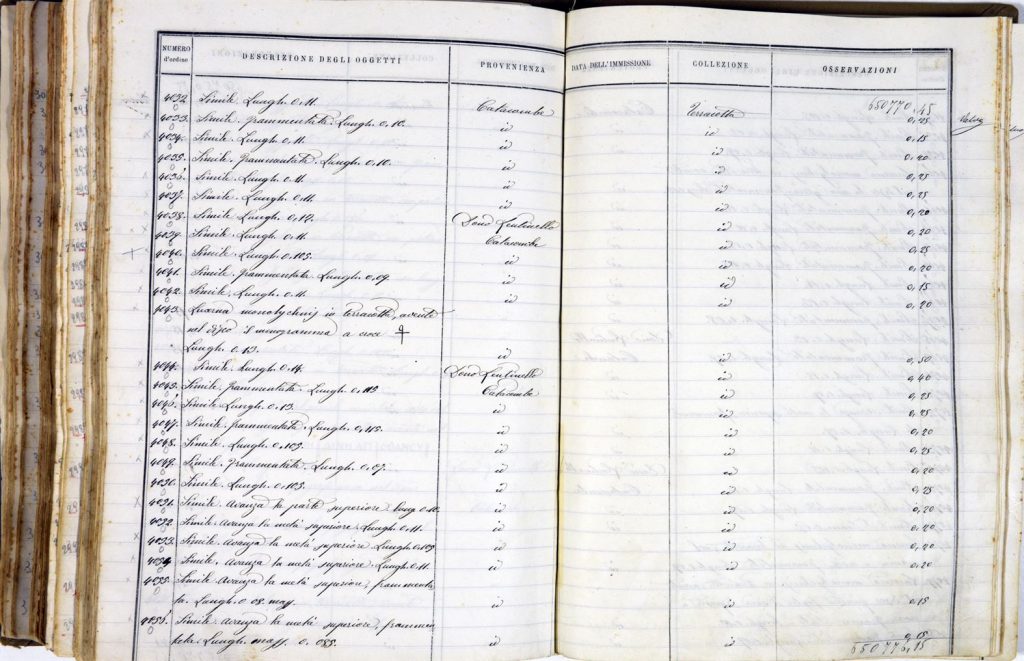 NUMERO d'ordine DESCRIZIONE DEGLI OGGETTI PROVENIENZA DATA DELL'IMMISSIONE COLLEZIONE OSSERVAZIONI
650770,45
4032 Simile Lungh. 0.11. Catacombe Terracotta 0,25
4033. Simile, frammentata Lungh. 0,10. id id 0,15
4034. Simile Lungh. 0.11. id id 0,20
4035. Simile, frammentata. Lungh. 0.10. id id 0,25
4036. Simile Lungh. 0.11. id id 0,25
4037. Simile Lungh. 0.11. id id 0,20
4038. Simile Lungh. 0,12. Dono Lentinello id 0,20
4039. Simile Lungh. 0.11. Catacombe id 0,25
4040. Simile Lungh. 0.105. id id 0,20
4041. Simile, frammentata Lungh. 0,09. id id 0,15
4042. Simile, Lungh. 0.11. id id 0,20
4043. Lucerna monolychnis in terracotta, avente
nel disco il monogramma a croce
Lungh. 0.13. id id 0,50
4044. Simile. Lungh. 0,14. Dono Lentinello id 0,40
4045. Simile, frammentata Lungh. 0,115 Catacombe id 0,25
4046. Simile Lungh. 0.13. id id 0,25
4047. Simile, frammentata. Lungh. 0,115. id id 0,20
4048. Simile. Lungh. 0.105. id id 0,25
4049. Simile, frammentata Lungh. 0,07. id id 0,20
4050. Simile, Lungh. 0.105. id id 0,25
4051. Simile Avanza la parte superiore lung. 0.10. id id 0,20
4052. Simile. Avanza la metà superiore. Lungh. 0.11. id id 0,20
4053. Simile. Avanza la metà superiore Lungh. 0.105 id id 0,20
4054. Simile, Avanza la metà superiore. Lungh. 0.11. id id 0,20
4055. Simile Avanza la metà superiore, frammenta
ta. Lungh. 0 08. mass. id id 0,15
4056. Simile Avanza la metà superiore, framme
tata. Lungh. mass. 0. 085. id id 0,15
650776,15